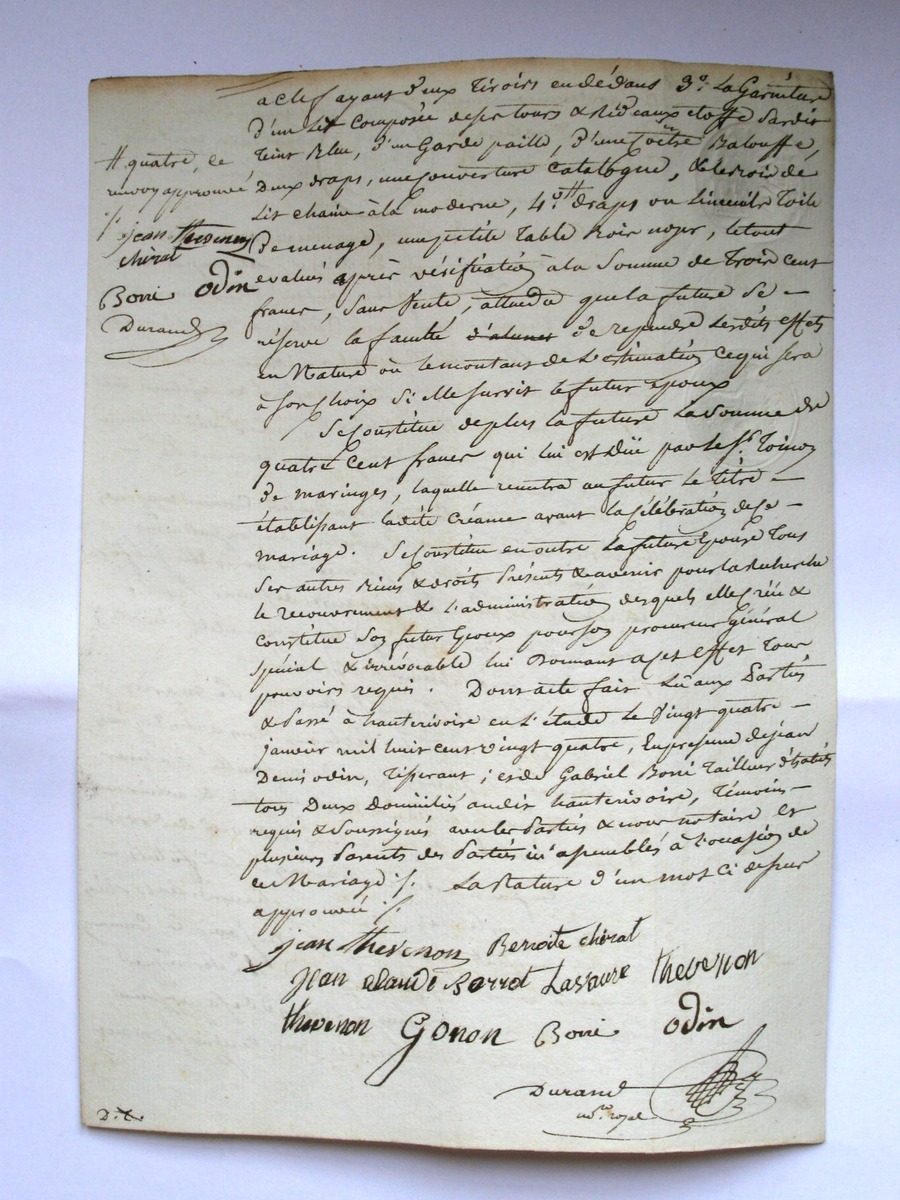 # quatre, ce
renvoy approuvé
./. jean thevenon
chirat
Borri odin
Durand
a clef ayant deux tiroirs en dédans 3.° La Garniture
d'un Lit Composée de ses tours & Rideaux etoffe Sardis
teint Bleu, d'un Garde paille, d'une Coître Balouffe,
Deux draps, une couverture Catalogne, & le bois de
Lit chaine à la moderne, 4.° # draps ou linceuils Toile
de menage, une petite table Bois noyer, le tout
evalués après vérification à la Somme de Trois cent
francs, Sans Vente, attendu que la future Se –
réserve la faculté de reprendre lesdits effets
en Nature ou le montant de L'estimation ce qui sera
à son choix Si elle survit le futur époux
Se Constitue de plus la future La somme de
quatre Cent francs qui lui est Düe par le S.r Toinon
de maringes, laquelle remettra au futur le titre –
établissant ladite Créance avant la célébration de ce –
mariage. Se Constitue en outre la future Epouse Tous
Ses autres Biens & droits Présents & avenir pour la Recherche
le recouvrement & L'administration desquels elle Crée &
constitue Son futur Epoux pour son procureur général
spécial & irrévocable lui Donnant a cet effet Tous
pouvoirs requis. Dont acte fait Lu aux Parties
& Passé à hauterivoire en L'étude Le Vingt quatre –
janvier mil huit cent vingt quatre, En presence de jean
Denis odin, Tisserant ; et de Gabriel Borri Tailleur d'habits
tous Deux Domiciliés audit hauterivoire, Témoins –
requis & Soussignés avec les Parties & nous notaire et
plusieurs Parents des Parties ici assemblés à l'occasion de
ce Mariage ./. La Rature d'un mot Ci dessus
approuvée ./.
jean thevenon Benoite chirat
jean claude Berrot Lassaure thevenon
thevenon Gonon Borri odin
Durand
no.re royal
D. t.